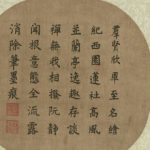 羣賢欣單至名繪
紀西園蓮社高風
並蘭亭逸趣存談
禪無我相撥阮靜
聞根意態全流露
消除筆墨痕